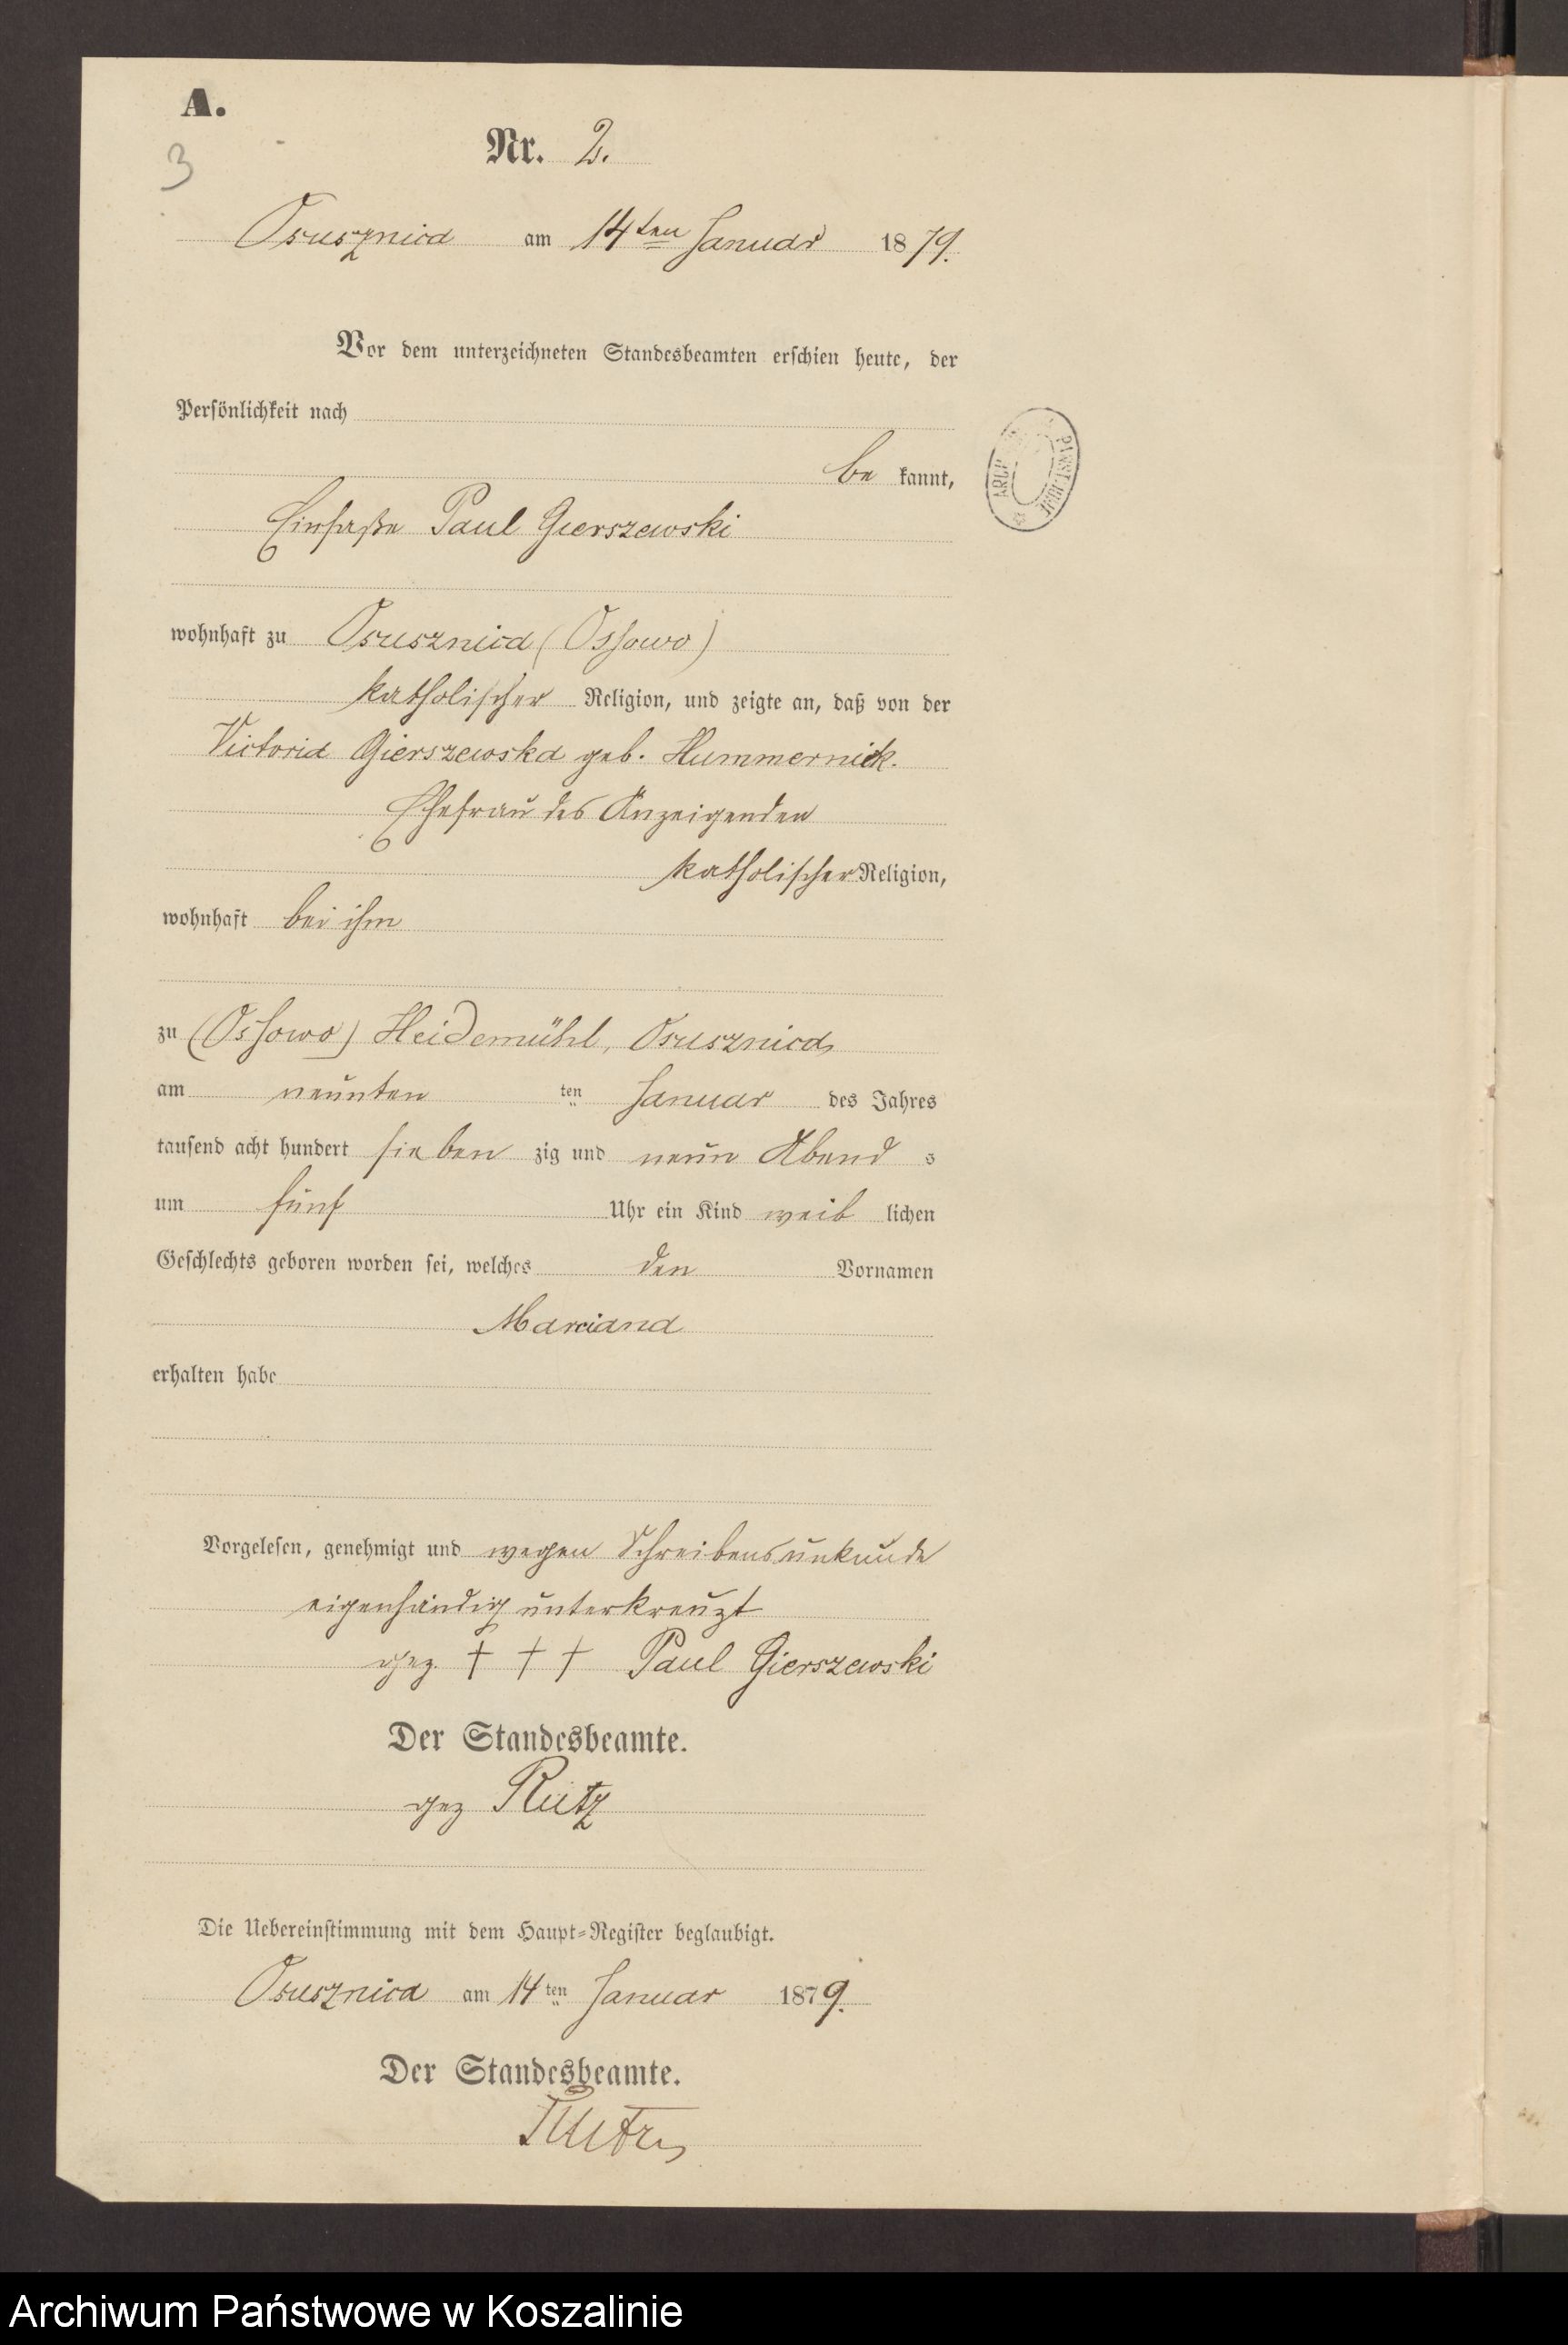 A.
3
Nr. 2.
Osusznica am 14ten Januar 1879.
Vor dem unterzeichneten Standesbeamten erschien heute, der
Persönlichkeit nach
be kannt,
Einsaße Paul Gierszewski
wohnhaft zu Osusznica (Ossowo)
katholischer Religion, und zeigte an, daß von der
Victoria Gierszewska geb. Hummernick.
Ehefrau des Anzeigenden
katholischer Religion,
wohnhaft bei ihm
zu (Ossowo) Heidemühl, Osusznica
am neunten ten Januar des Jahres
tausend acht hundert sieben zig und neun Abend s
um fünf Uhr ein Kind weib lichen
Geschlechts geboren worden sei, welches den Vornamen
Marciana
erhalten habe
Vorgelesen, genehmigt und wegen Schreibensunkunde
eigenhändig unterkreuzt
gez. † † † Paul Gierszewski
Der Standesbeamte.
gez Rutz
Die Uebereinstimmung mit dem Haupt-Register beglaubigt.
Osusznica am 14ten Januar 1879.
Der Standesbeamte.
Rutz
Archiwum Państwowe w Koszalinie